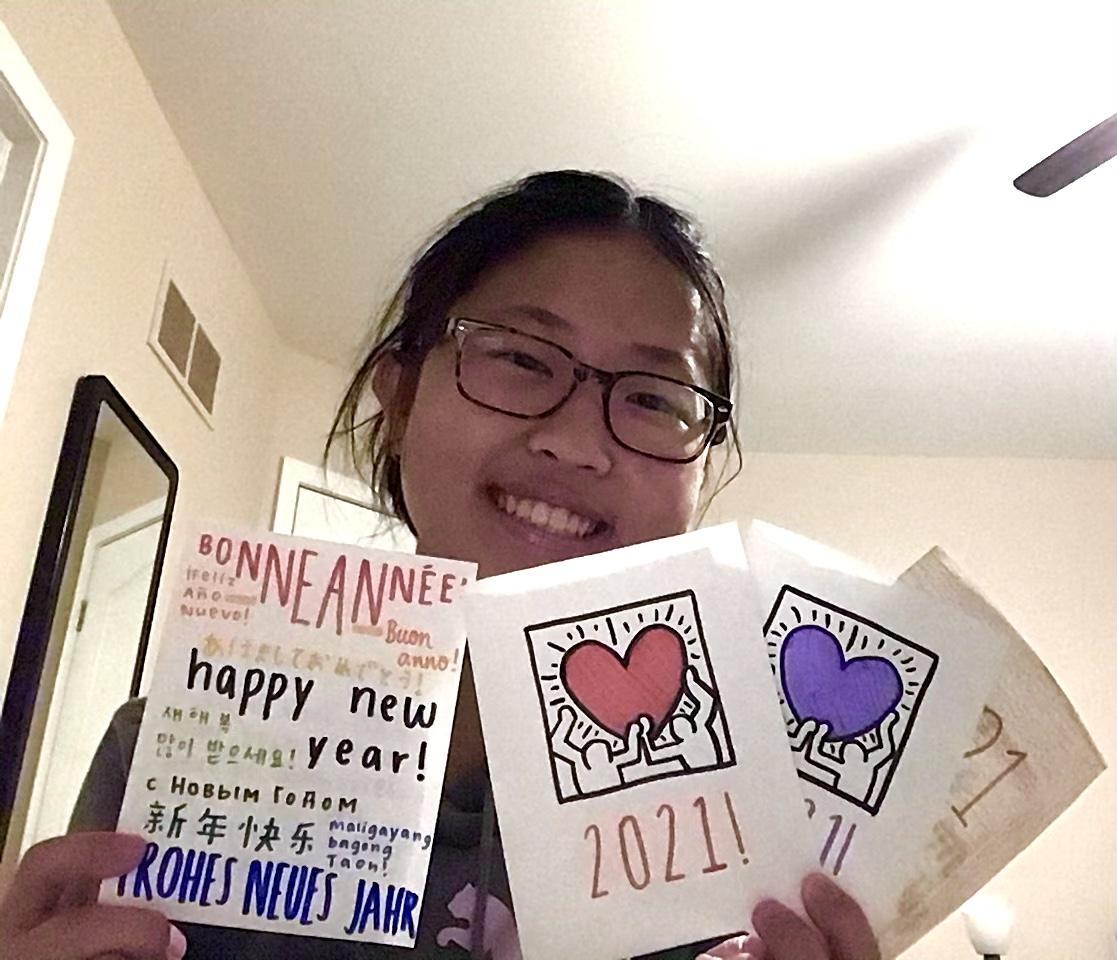 BONNE ANNÉE!
¡Feliz
Año
Nuevo!
Buon
anno!
あけましておめでとう!
happy new
year!
새해 복
많이 받으세요!
с Новым Годом
新年快乐
maligayang
bagong
Taon!
FROHES NEUES JAHR
2021!
21!
21